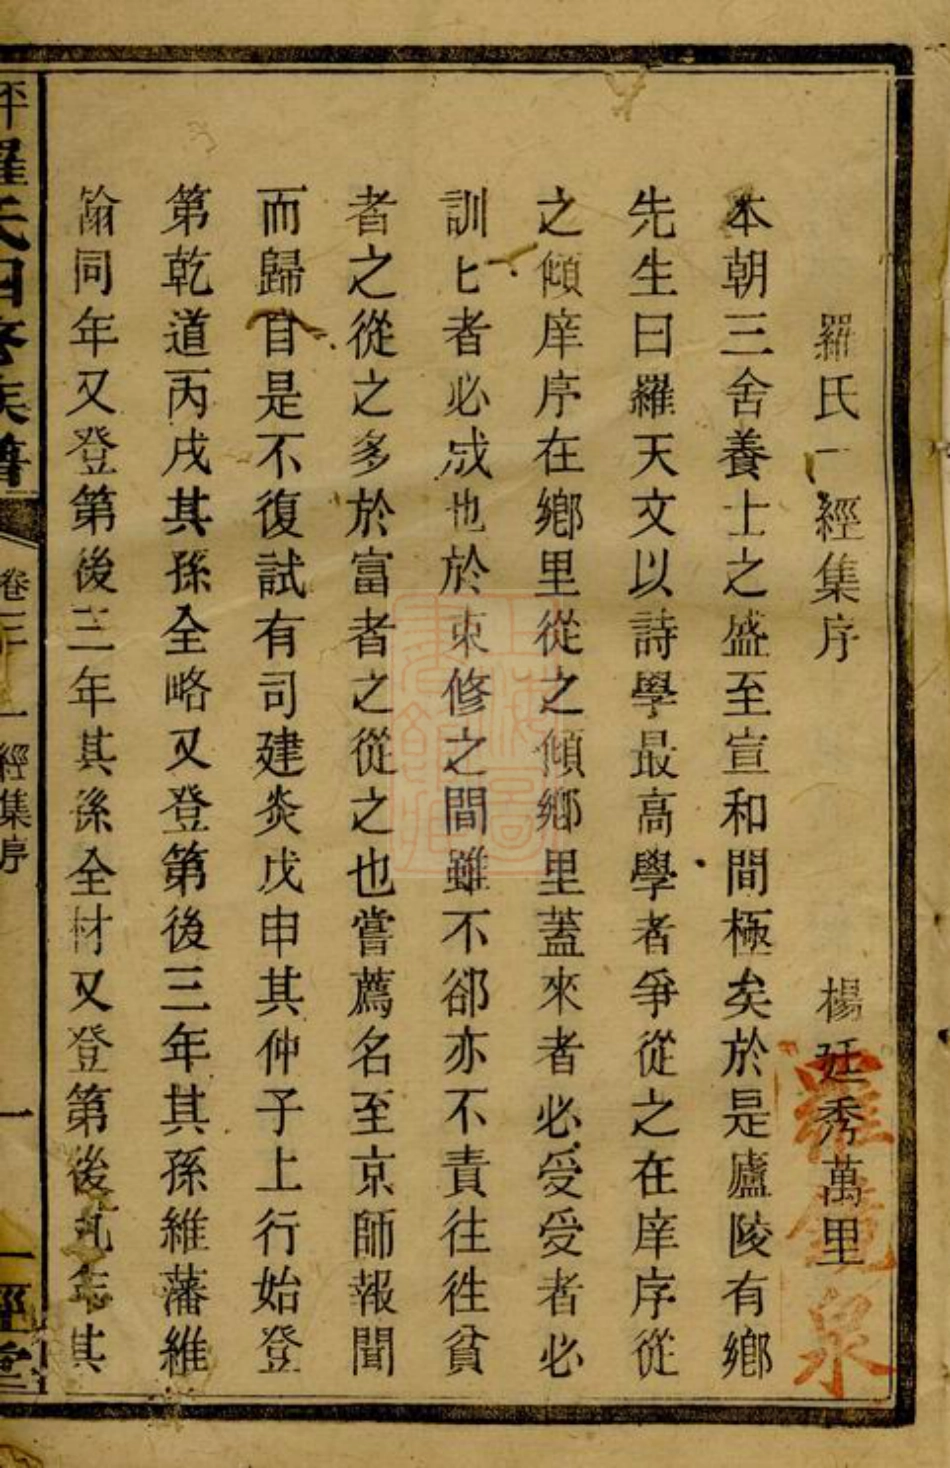 羅氏一經集序
楊廷秀萬里
本朝三舍養士之盛至宣和間極矣於是廬陵有鄉
先生曰羅天文以詩學最高學者爭從之在庠序從
之傾庠序在鄉里從之傾鄉里蓋來者必受受者必
訓匕者必成也於束修之間雖不郤亦不責往往貧
者之從之多於富者之從之也嘗薦名至京師報聞
而歸自是不復試有司建炎戊申其仲子上行始登
第乾道丙戌其孫全略又登第後三年其孫維藩維
翰同年又登第後三年其孫全材又登第後九年其
羅氏四修族譜
卷二
一經集序
一
一經堂